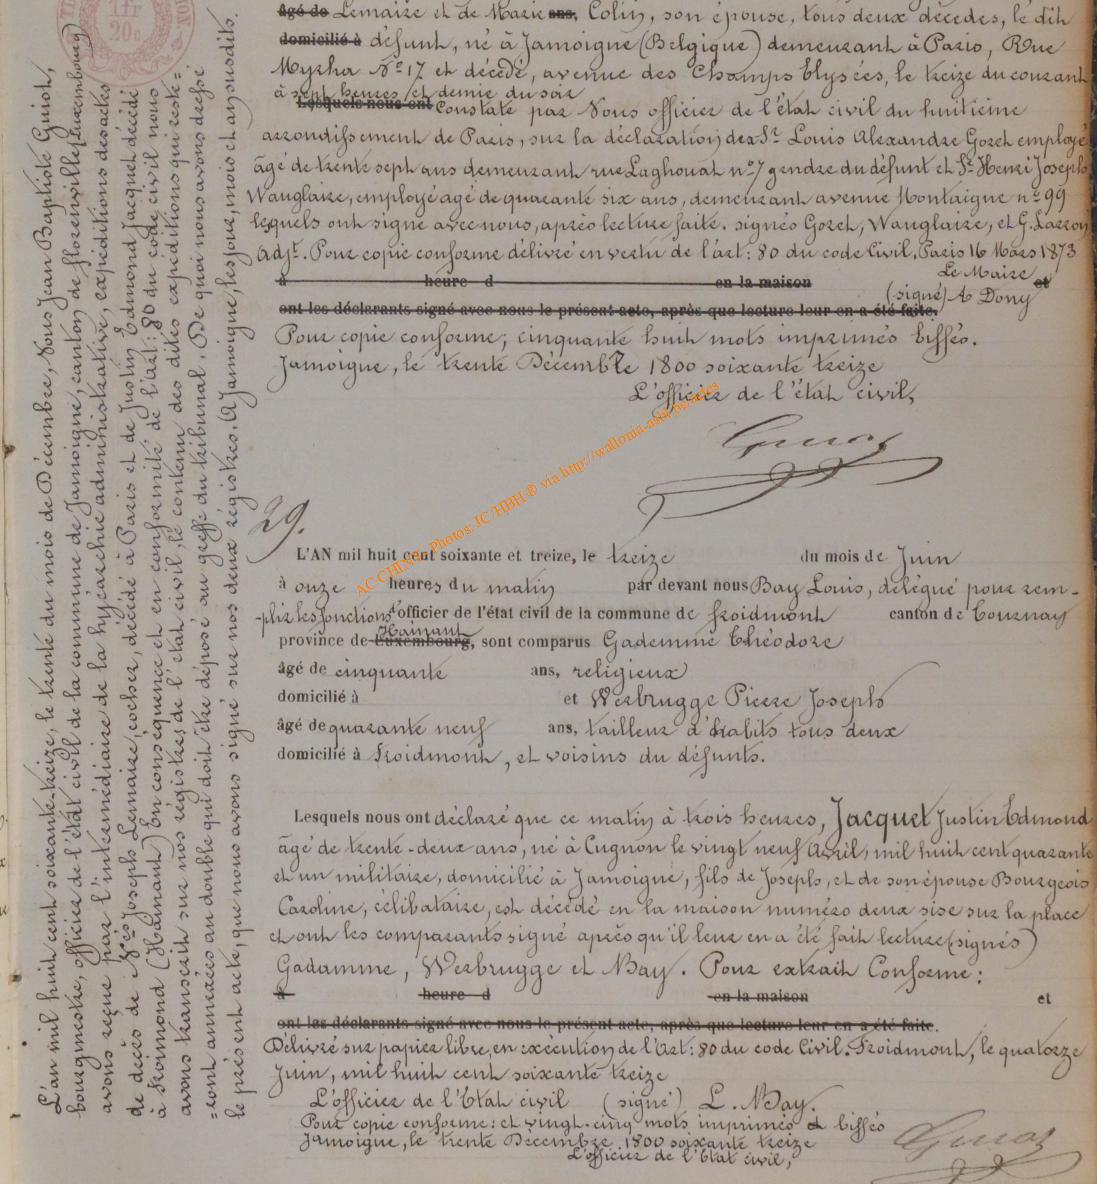 âgé de Lemaire et de Marie ans, Colin, son épouse, tous deux décédés, le dit
domicilié à défunt, né à Jamoigne (Belgique) demeurant à Paris, Rue
Myrha N° 17 et décédé, avenue des Champs Elysées, le treize du courant
à sept heures et demie du soir
Lesquels nous ont Constaté par Nous officier de l'état civil du huitième
arrondissement de Paris, sur la déclaration des Sr Louis Alexandre Goret employé
âgé de trente sept ans demeurant rue Laghouat n° 7 gendre du défunt et Sr Henri Joseph
Wauglaire, employé âgé de quarante six ans, demeurant avenue Montaigne n° 99
lesquels ont signé avec nous, après lecture faite. signés Goret, Wauglaire, et G. Larron
Adjt. Pour copie conforme délivré en vertu de l'art: 80 du code Civil. Paris 16 Mars 1873
Le Maire
à heure d en la maison et
(signé) A Dony
ont les déclarants signé avec nous le présent acte, après que lecture leur en a été faite.
Pour copie conforme; cinquante huit mots imprimés biffés.
Jamoigne, le trente Décembre 1800 soixante treize
L'officier de l'état civil,
29.
L'AN mil huit cent soixante et treize, le treize du mois de Juin
à onze heures du matin par devant nous Bay Louis, délégué pour rem-
-plir les fonctions d'officier de l'état civil de la commune de Froidmont canton de Tournay
Hainaut
province de Luxembourg, sont comparus Gademme Théodore
âgé de cinquante ans, religieux
domicilié à et Werbrugge Pierre Joseph
âgé de quarante neuf ans, tailleur d'habits tous deux
domicilié à Froidmont, et voisins du défunts.
Lesquels nous ont déclaré que ce matin à trois heures, Jacquet Justin Edmond
âgé de trente-deux ans, né à Cugnon le vingt neuf Avril, mil huit cent quarante
et un militaire, domicilié à Jamoigne, fils de Joseph, et de son épouse Bourgeois
Caroline, célibataire, est décédé en la maison numéro deux sise sur la place
et ont les comparants signé après qu'il leur en a été fait lecture (signés)
Gadamme, Werbrugge et Bay. Pour extrait Conforme:
à heure d en la maison et
ont les déclarants signé avec nous le présent acte, après que lecture leur en a été faite.
Délivré sur papier libre, en exécution de l'Art: 80 du code Civil. Froidmont, le quatorze
Juin, mil huit cent soixante treize
L'officier de l'Etat civil (signé) L. Bay.
Pour copie conforme: et vingt-cinq mots imprimés biffés
Jamoigne, le trente Décembre 1800 soixante treize
L'officier de l'Etat civil,
L'an mil huit cent soixante-treize, le trente du mois de Décembre, Nous Jean Baptiste Guiot,
bourgmestre, officier de l'état civil de la commune de Jamoigne, canton de florenville (Luxembourg)
avons reçue par l'intermédiaire de la hyérarchie administrative, expéditions des actes
de décès de Nas Joseph Lemaire, cocher, décédé à Paris et de Justin Edmond Jacquet décédé
à Froimond (Hainaut) En conséquence et en conformité de l'art: 80 du code civil nous
avons transcrit sur nos régistres de l'état civil, le contenu des dites expéditions qui reste=
=ront annexées au double qui doit être déposé au greffe du tribunal. De quoi nous avons dressé
le présent acte, que nous avons signé sur nos deux régistres. A Jamoigne, les jour, mois et an susdits.
1Fr
20c
AC-CHINY - Photos: JC/HBH ® via http://wallonia-asbl.be/actes